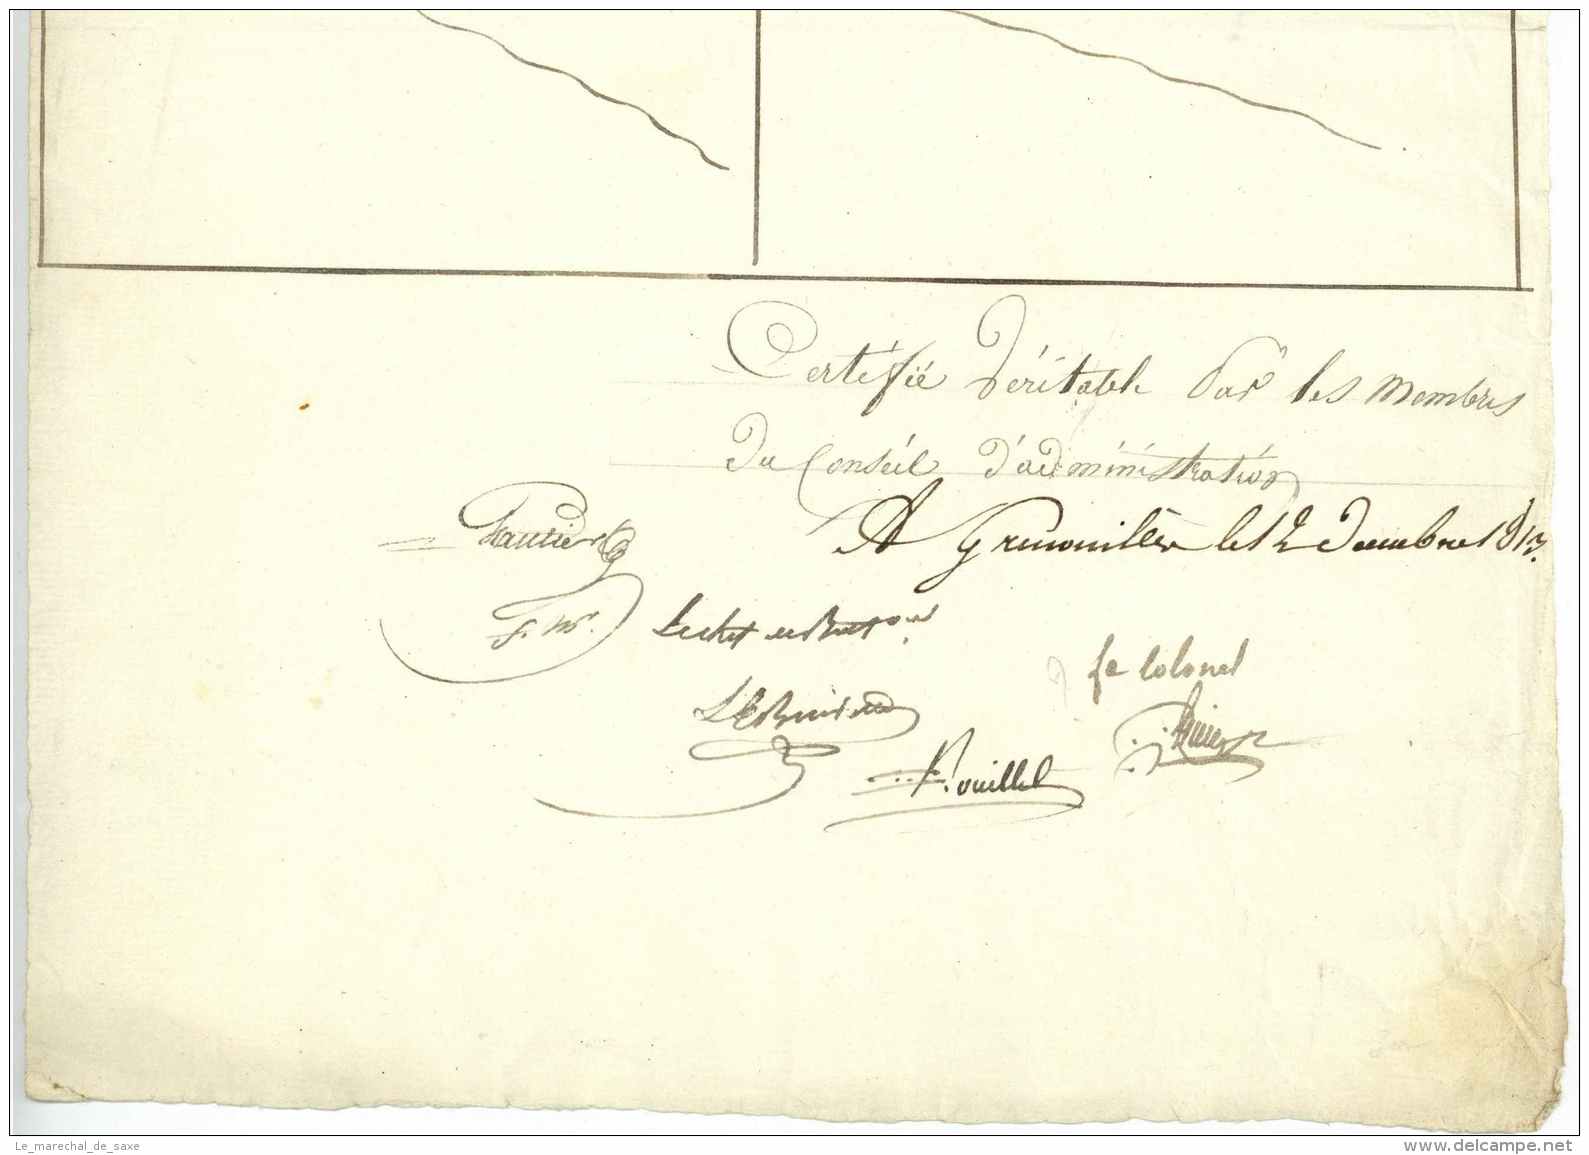 Certifié Véritable Par les membres
du Conseil d'administration
A Grunwiller le 12 Decembre 1813.
Gautier
Le chef de Bat on
Le Colonel
Rouillet
Le_marechal_de_saxe
www.delcampe.net